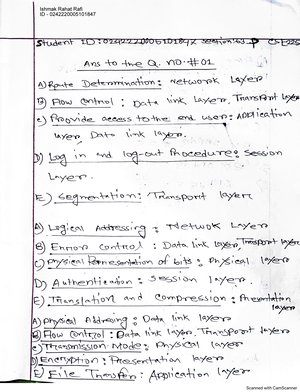 Ishmak Rahat Rafi
ID - 0242220005101847
Student ID: 0242220005101847 section: 63_P CSE225
Ans to the Q. NO:#01
A) Route Determination: Network Layer
B) Flow Control: Data link Layer, Transport Layer
c) Provide access to the end user: Application
layer, Data link layer.
D) Log in and log-out Procedure: Session
Layer.
E) Segmentation: Transport layer
A) Logical Addressing: Network Layer
B) Error control: Data link Layer, Transport layer
C) Physical Representation of bits: Physical layer
D) Authentication: session layer.
E) Translation and compression: Presentation
layer
A) Physical Addressing: Data link layer
B) Flow control: Data link layer, Transport layer
c) Transmission Mode: Physical layer
D) Encryption: Presentation layer
E) File Transfer: Application layer
Scanned with CamScanner